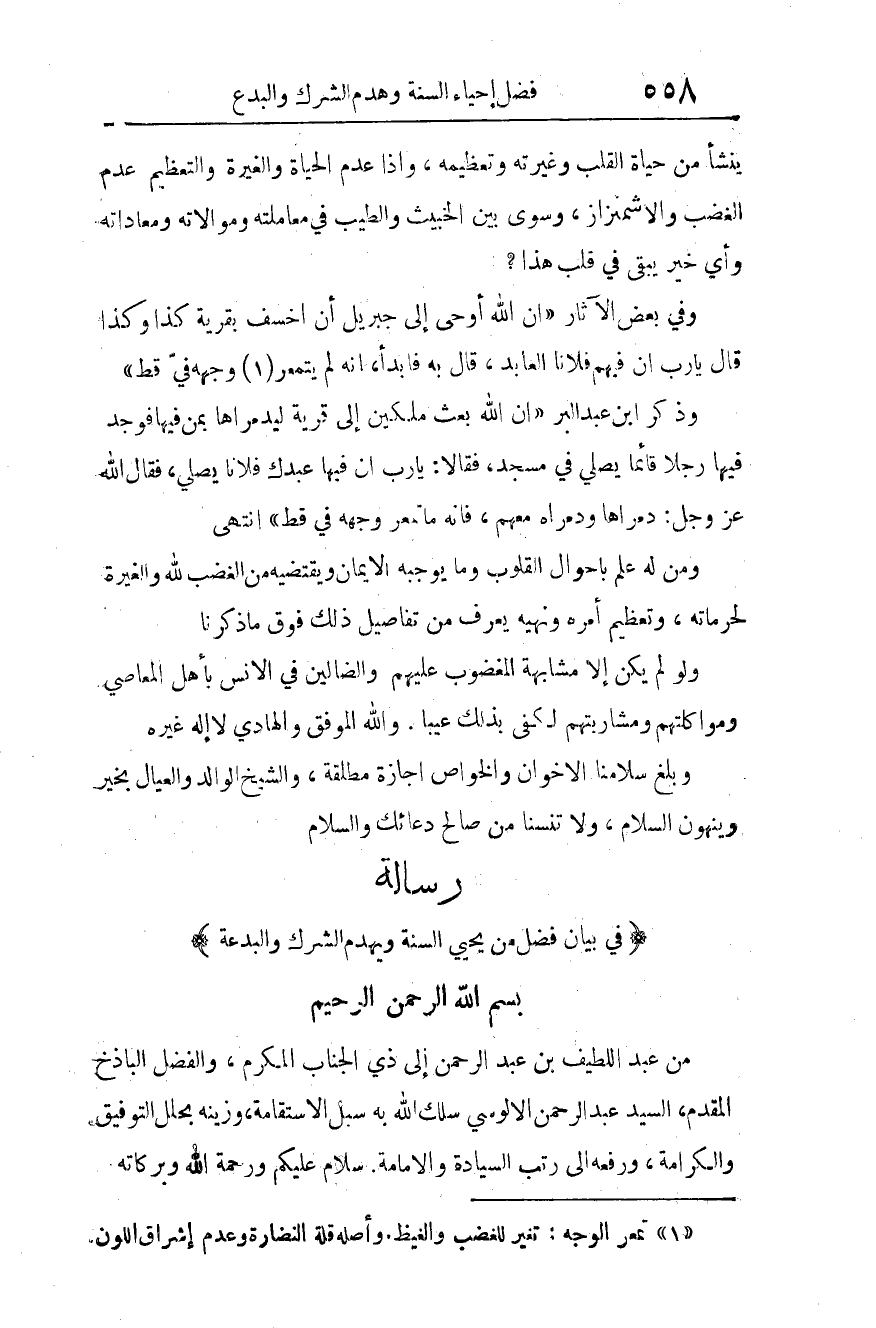 ٥٥٨ فضل إحياء السنة وهدم الشرك والبدع
ينشأ من حياة القلب وغيرته وتعظيمه ، واذا عدم الحياة والغيرة والتعظيم عدم
الغضب والاشمئزاز ، وسوى بين الخبيث والطيب في معاملته وموالاته ومعاداته
وأي خير يبقى في قلب هذا ؟
وفي بعض الآثار «ان الله أوحى إلى جبريل أن اخسف بقرية كذا وكذا
قال يارب ان فيهم فلانا العابد ، قال به فابدأ، انه لم يتمعر(١) وجهه فيّ قط»
وذكر ابن عبدالبر «ان الله بعث ملكين إلى قرية ليدمراها بمن فيها فوجد
فيها رجلا قائما يصلي في مسجد، فقالا: يارب ان فيها عبدك فلانا يصلي، فقال الله
عز وجل: دمراها ودمراه معهم ، فانه ماتمعر وجهه في قط» انتهى
ومن له علم باحوال القلوب وما يوجبه الايمان ويقتضيه من الغضب لله والغيرة
لحرماته ، وتعظيم أمره ونهيه يعرف من تفاصيل ذلك فوق ماذكرنا
ولو لم يكن إلا مشابهة المغضوب عليهم والضالين في الانس بأهل المعاصي
ومواكلتهم ومشاربتهم لكفى بذلك عيبا . والله الموفق والهادي لا إله غيره
وبلغ سلامنا الاخوان والخواص اجازة مطلقة ، والشيخ الوالد والعيال بخير
وينهون السلام ، ولا تنسنا من صالح دعائك والسلام
رسالة
﴿ في بيان فضل من يحيي السنة ويهدم الشرك والبدعة ﴾
بسم الله الرحمن الرحيم
من عبد اللطيف بن عبد الرحمن إلى ذي الجناب المكرم ، والفضل الباذخ
المقدم، السيد عبدالرحمن الالوسي سلك الله به سبل الاستقامة، وزينه بحلل التوفيق
والكرامة ، ورفعه الى رتب السيادة والامامة. سلام عليكم ورحمة الله وبركاته
«١» تمعر الوجه : تغير للغضب والغيظ. وأصله قلة النضارة وعدم إشراق اللون.